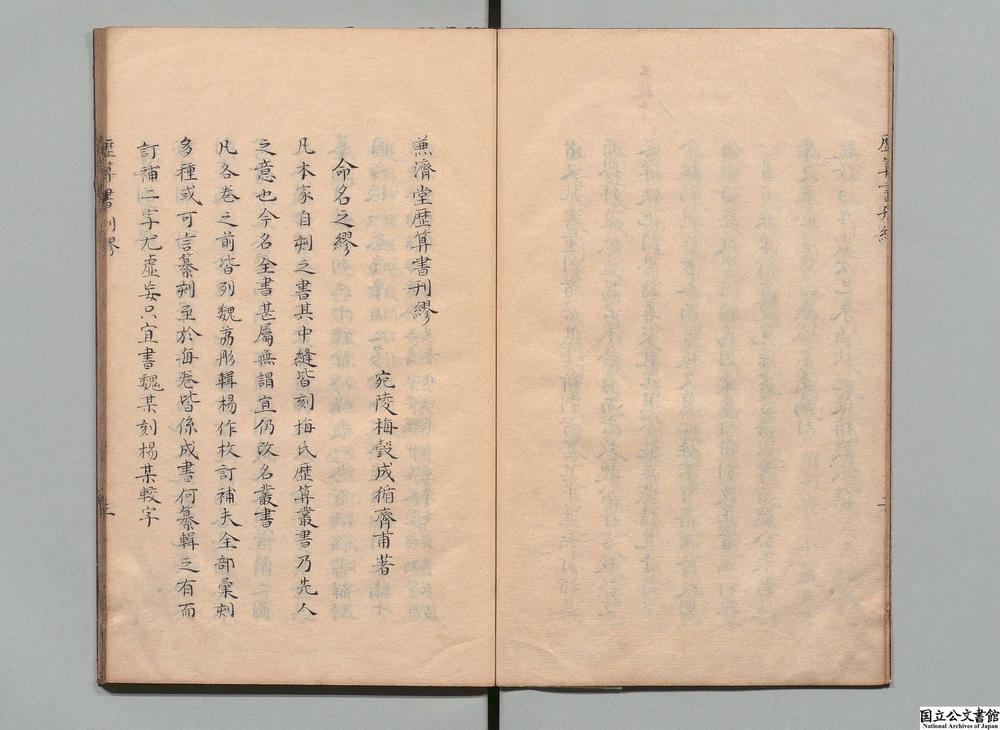 歷算書刊繆
兼濟堂歷算書刊繆
宛陵梅瑴成循齋甫著
命名之繆
凡本家自刻之書其中縫皆刻梅氏歷算叢書乃先人
之意也今名全書甚屬無謂宜仍改名叢書
凡各卷之前皆列魏荔彤輯楊作枚訂補夫全部彙刻
多種或可言纂刻至於每卷皆係成書何纂輯之有而
訂補二字尤虛妄只宜書魏某刻楊某較字
歷算書刊繆
国立公文書館
National Archives of Japan